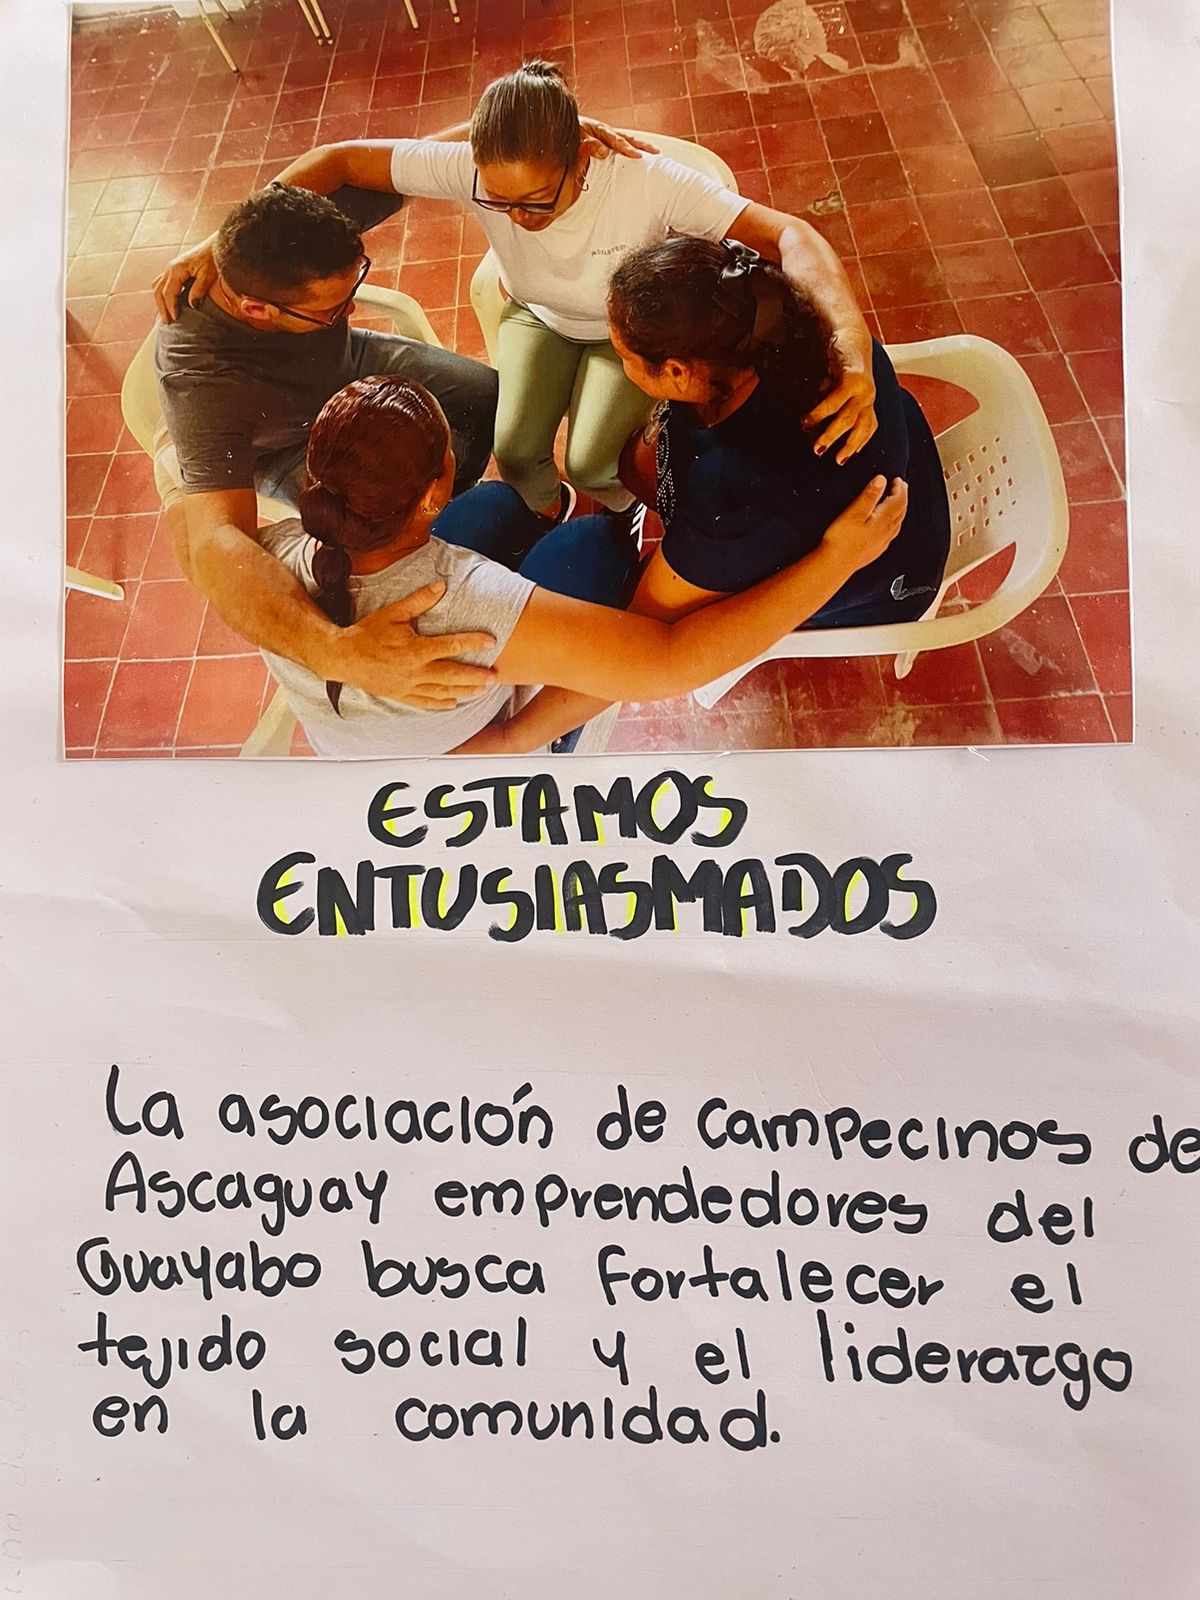 ESTAMOS
ENTUSIASMADOS
La asociación de campecinos de
Ascaguay emprendedores del
Guayabo busca fortalecer el
tejido social y el liderazgo
en la comunidad.